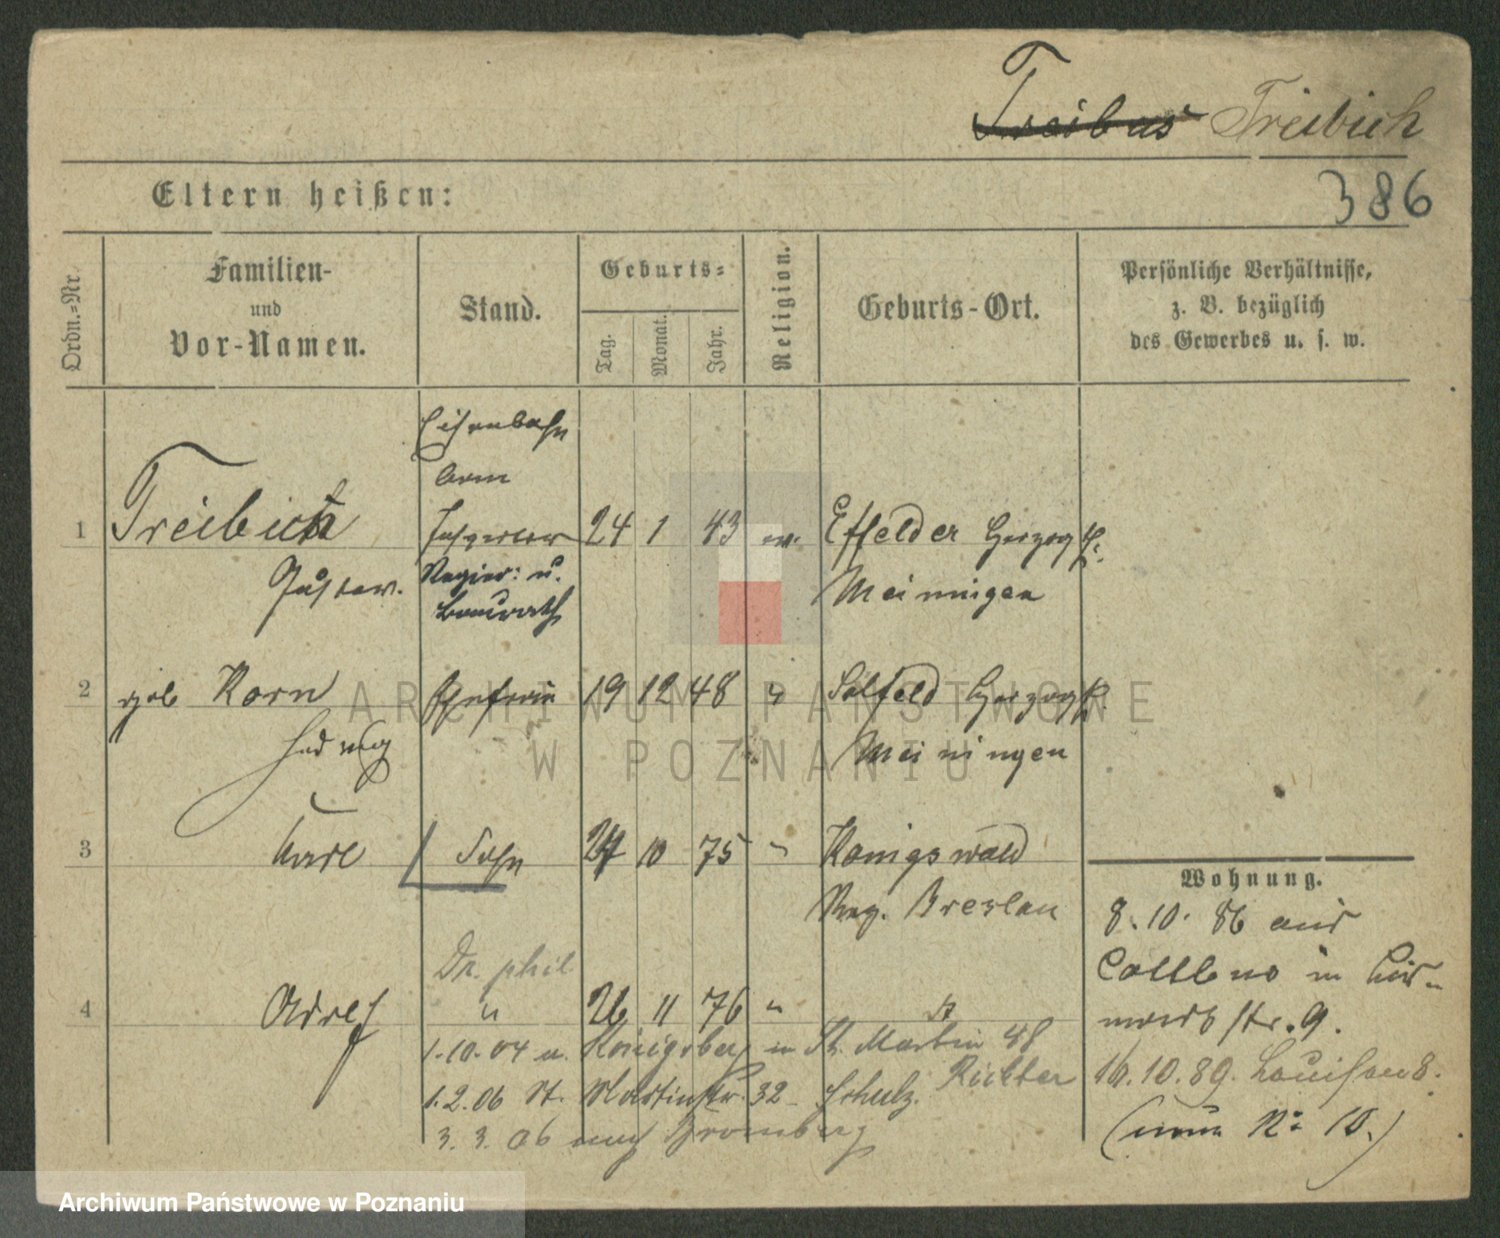 Treibus Treibich
386
Eltern heißen:
Ordn.-Nr.
Familien-
und
Vor-Namen.
Stand.
Geburts-
Tag.
Monat.
Jahr.
Religion.
Geburts-Ort.
Persönliche Verhältnisse,
z. B. bezüglich
des Gewerbes u. s. w.
Eisenbahn
1 Treibich 24 1 43 ev. Effelder Herzogth.
Gustav. Regier: u. Meiningen
Baurath
2 geb Korn Ehefrau 19 12 48 " Salfeld Herzogth.
Hedwig Meiningen
3 Karl Sohn 24 10 75 " Königswald
Reg. Breslau
Dr. phil
4 Adolf " 26 11 76 "
1.10.04 a. Königsberg in St. Martin 48
Richter
1.2.06 St. Martinstr. 32 Schulz.
3.3.06 nach Bromberg
Wohnung.
8.10.86 aus
Cottbus in
str. 9.
16.10.89. Louisen 8.
(neue No 10.)
ARCHIWUM PAŃSTWOWE
W POZNANIU
Archiwum Państwowe w Poznaniu